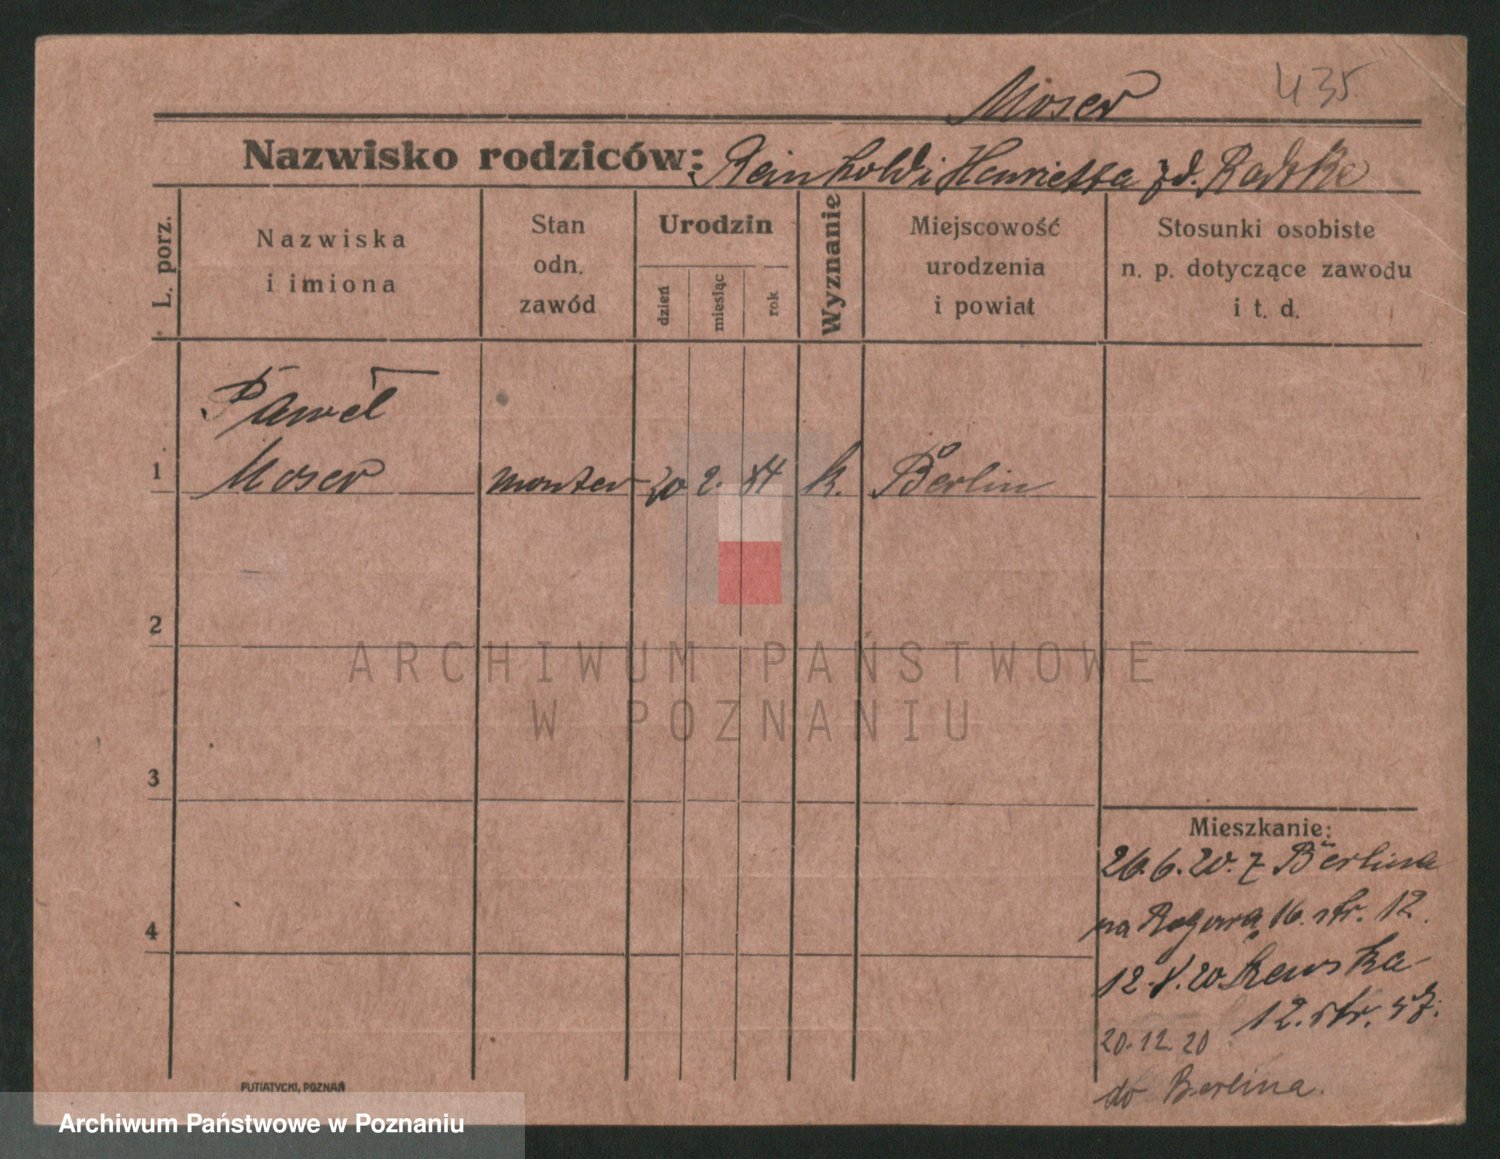 Moser 435
Nazwisko rodziców: Reinhold i Henrietta zd. Radtke
L. porz.
Nazwiska
i imiona
Stan
odn.
zawód
Urodzin
dzień
miesiąc
rok
Wyznanie
Miejscowość
urodzenia
i powiat
Stosunki osobiste
n. p. dotyczące zawodu
i t. d.
Paweł
1 Moser monter 20 2. 84 k. Berlin
2
3
4
ARCHIWUM PAŃSTWOWE
W POZNANIU
Mieszkanie:
26.6.20. z Berlina
na 16. str. 12.
12. 20
12. str. 57.
20.12.20
do Berlina.
PUTIATYCKI, POZNAŃ
Archiwum Państwowe w Poznaniu